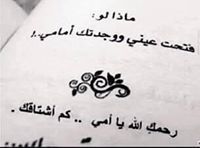 ماذا لو:
فتحت عيني ووجدتك أمامي.!
رحمك الله يا أمي .. كم أشتاقك .